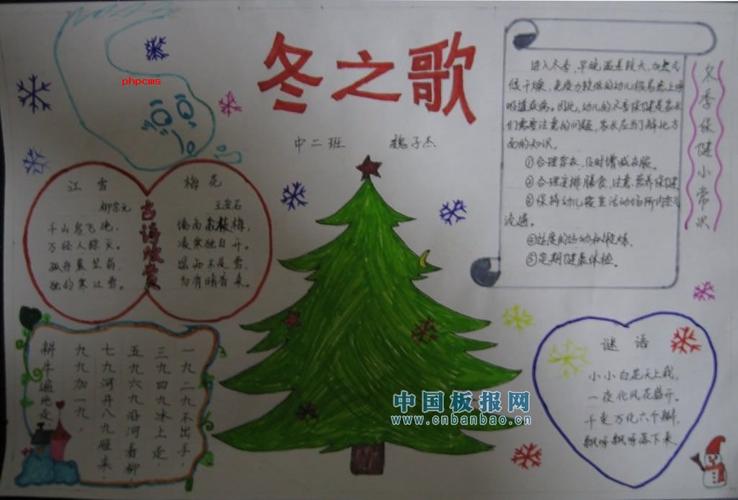 冬之歌
phpcms
中二班 魏子杰
江雪
柳宗元
千山鸟飞绝，
万径人踪灭。
孤舟蓑笠翁，
独钓寒江雪。
古诗欣赏
梅花
王安石
墙角数枝梅，
凌寒独自开。
遥知不是雪，
为有暗香来。
冬季保健小常识
进入冬季，早晚温差较大，加之气
候干燥，免疫力较低的幼儿很容易患上呼
吸道疾病。因此，幼儿的冬季保健是家长
们需要注意的问题，家长应当了解此方
面的知识。
①合理穿衣，及时增减衣服。
②合理安排膳食，注意营养保健。
③保持幼儿寝室活动场所内空气
流通。
④适度的运动和锻炼。
⑤定期健康体检。
一九二九不出手，
三九四九冰上走，
五九六九沿河看柳，
七九河开八九雁来，
九九加一九，
耕牛遍地走。
谜语
小小白花天上栽，
一夜北风花盛开。
千变万化六个瓣，
飘呀飘呀落下来。
中国板报网
www.cnbanbao.cn